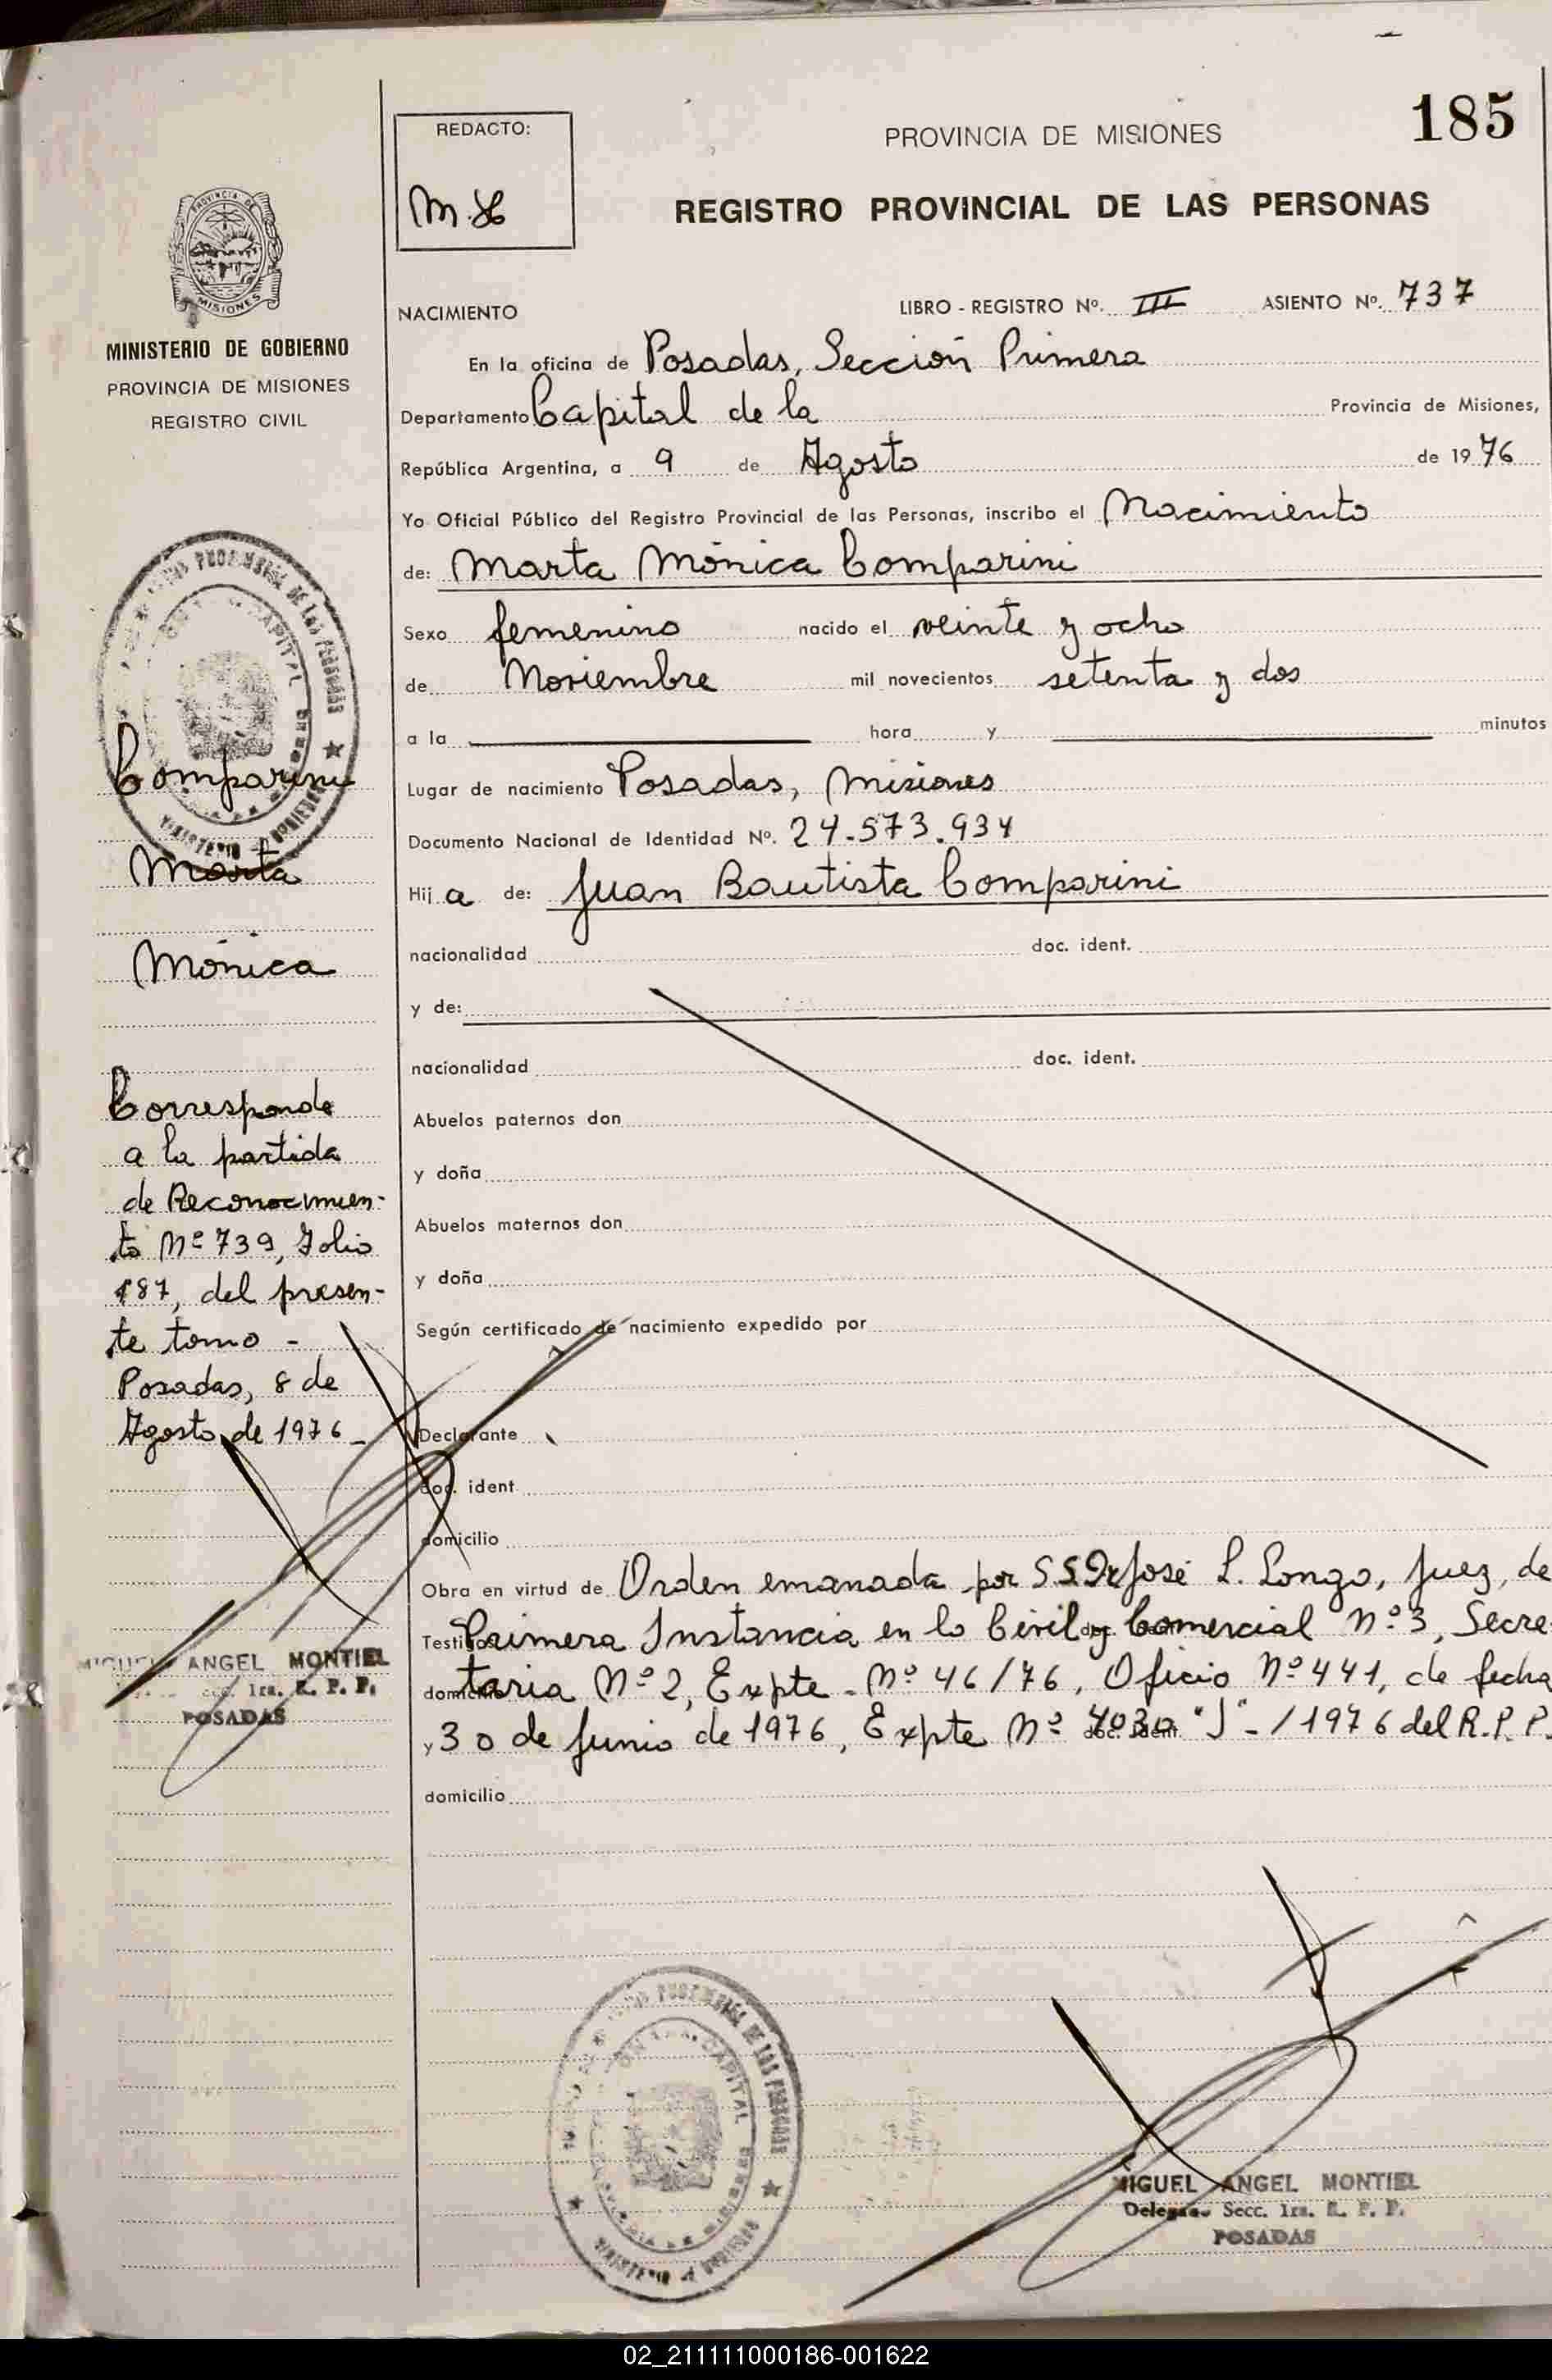 185
REDACTO:
PROVINCIA DE MISIONES
REGISTRO PROVINCIAL DE LAS PERSONAS
MISIONES
MINISTERIO DE GOBIERNO
PROVINCIA DE MISIONES
REGISTRO CIVIL
Comparini
Marta
Mónica
Corresponde
a la partida
de Reconocimien-
to Nº 739, Folio
187, del presen-
te tomo -
Posadas, 8 de
Agosto de 1976 -
ANGEL MONTIEL
1ra. R. P. P.
POSADAS
NACIMIENTO LIBRO - REGISTRO Nº. III ASIENTO Nº. 737
En la oficina de Posadas, Sección Primera
Departamento Capital de la Provincia de Misiones,
República Argentina, a 9 de Agosto de 1976
Yo Oficial Público del Registro Provincial de las Personas, inscribo el Nacimiento
de: Marta Mónica Comparini
Sexo femenino nacido el veinte y ocho
de Noviembre mil novecientos setenta y dos
a la hora y minutos
Lugar de nacimiento Posadas, Misiones
Documento Nacional de Identidad Nº. 24.573.934
Hij a de: Juan Bautista Comparini
nacionalidad doc. ident.
y de:
nacionalidad doc. ident.
Abuelos paternos don
y doña
Abuelos maternos don
y doña
Según certificado de nacimiento expedido por
Declarante
doc. ident
domicilio
Obra en virtud de Orden emanada por S.S. Dr José L. Longo, Juez, de
Primera Instancia en lo Civil y Comercial Nº 3, Secre-
domicilio taria Nº 2, Expte. Nº 46/76, Oficio Nº 441, de fecha
y 30 de Junio de 1976, Expte Nº "J" - /1976 del R.P.P.
domicilio
MIGUEL ANGEL MONTIEL
Delegado Secc. 1ra. R. P. P.
POSADAS
02_211111000186-001622